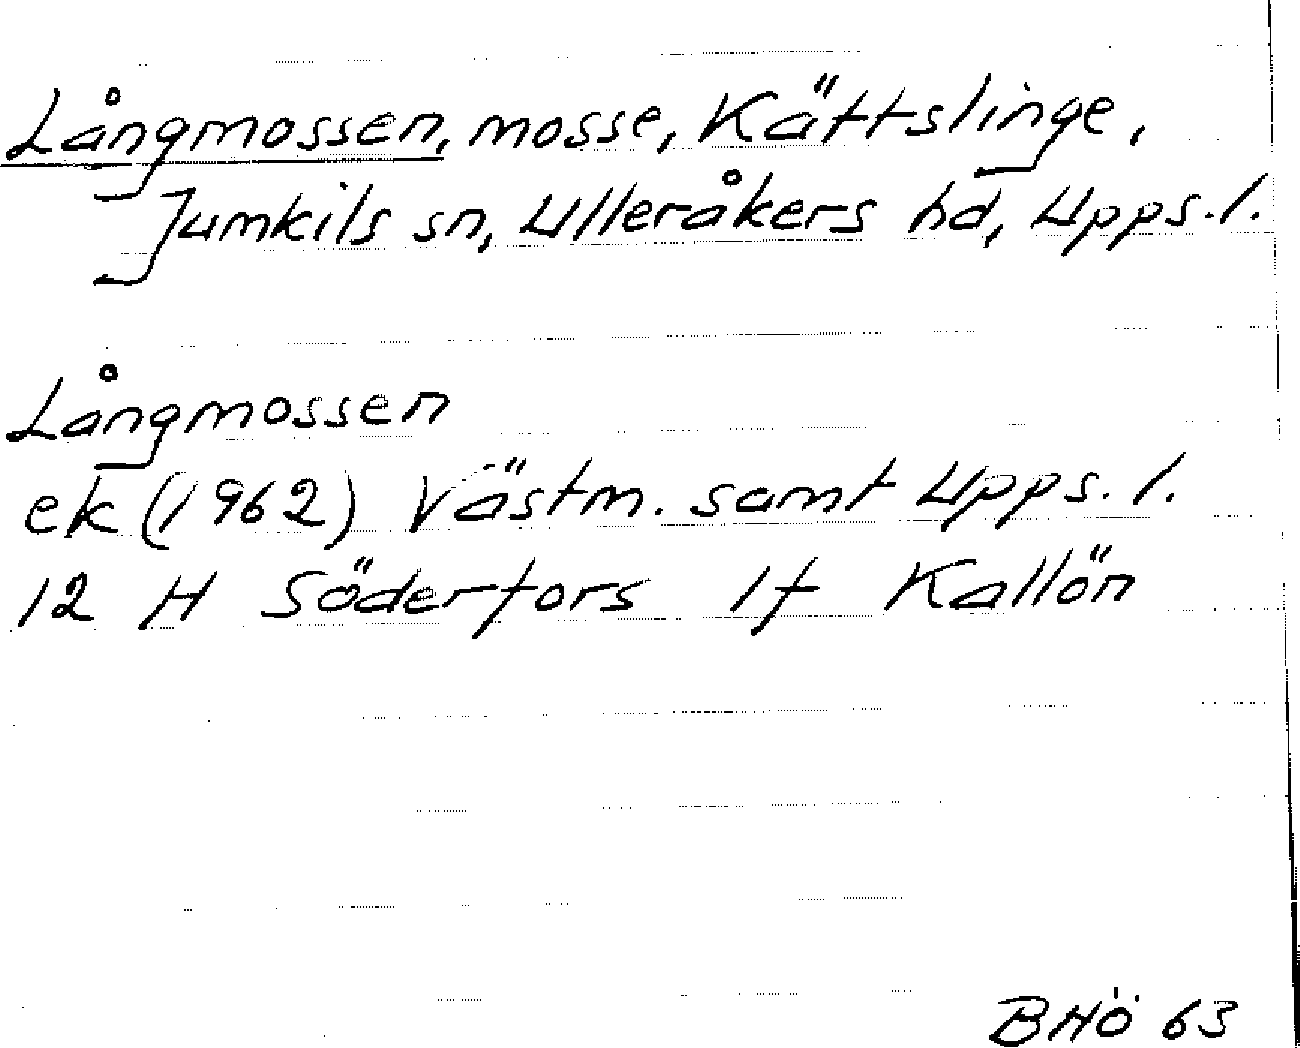 Långmossen, mosse, Kättslinge,
Jumkils sn, Ulleråkers hd, Upps. l.
Långmossen
ek (1962) Västm. samt Upps. l.
12 H Söderfors 1f Kallön
BHÖ 63